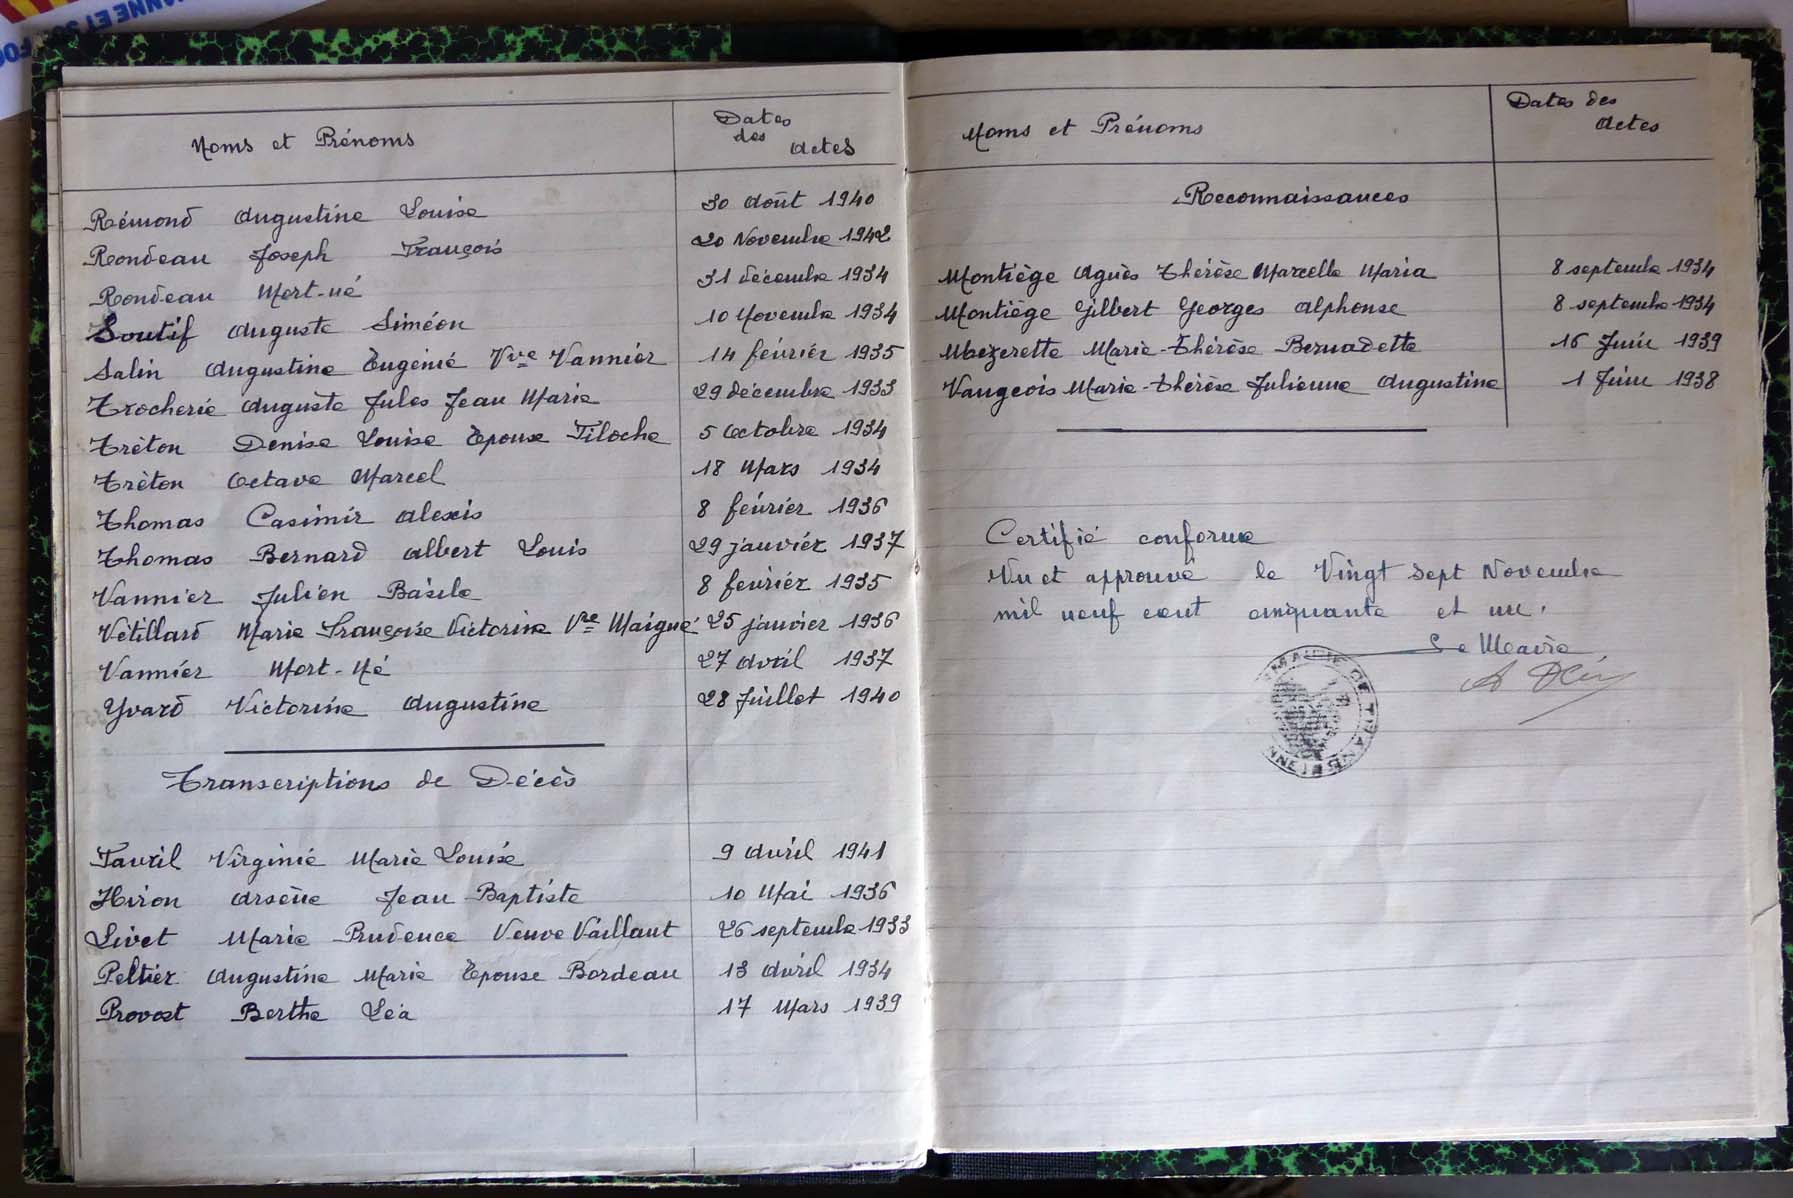 Noms et Prénoms
Dates
des
Actes
Rémond Augustine Louise 30 Août 1940
Rondeau Joseph François 20 Novembre 1942
Rondeau Mort-né 31 décembre 1934
Soutif Auguste Siméon 10 Novembre 1934
Salin Augustine Eugénie Vve Vannier 14 février 1935
Trocherie Auguste Jules Jean Marie 29 décembre 1933
Tréton Denise Louise Epouse Filoche 5 Octobre 1934
Tréton Octave Marcel 18 Mars 1934
Thomas Casimir Alexis 8 février 1936
Thomas Bernard Albert Louis 29 janvier 1937
Vannier Julien Basile 8 février 1935
Vétillard Marie Françoise Victorine Vve Maigné 25 janvier 1936
Vannier Mort-Né 27 Avril 1937
Yvard Victorine Augustine 28 Juillet 1940
Transcriptions de Décès
Favril Virginie Marie Louise 9 Avril 1941
Hiron Arsène Jean Baptiste 10 Mai 1936
Livet Marie Prudence Veuve Vaillant 26 septembre 1933
Peltier Augustine Marie Epouse Bordeau 13 Avril 1934
Provost Berthe Léa 17 Mars 1939
Noms et Prénoms
Dates des
Actes
Reconnaissances
Montiège Agnès Thérèse Marcelle Maria 8 septembre 1934
Montiège Gilbert Georges Alphonse 8 septembre 1934
Mezerette Marie-Thérèse Bernadette 16 Juin 1939
Vaugeois Marie-Thérèse Julienne Augustine 1 Juin 1938
Certifié conforme
Vu et approuvé le Vingt sept Novembre
mil neuf cent cinquante et un.
Le Maire
MAIRIE DE